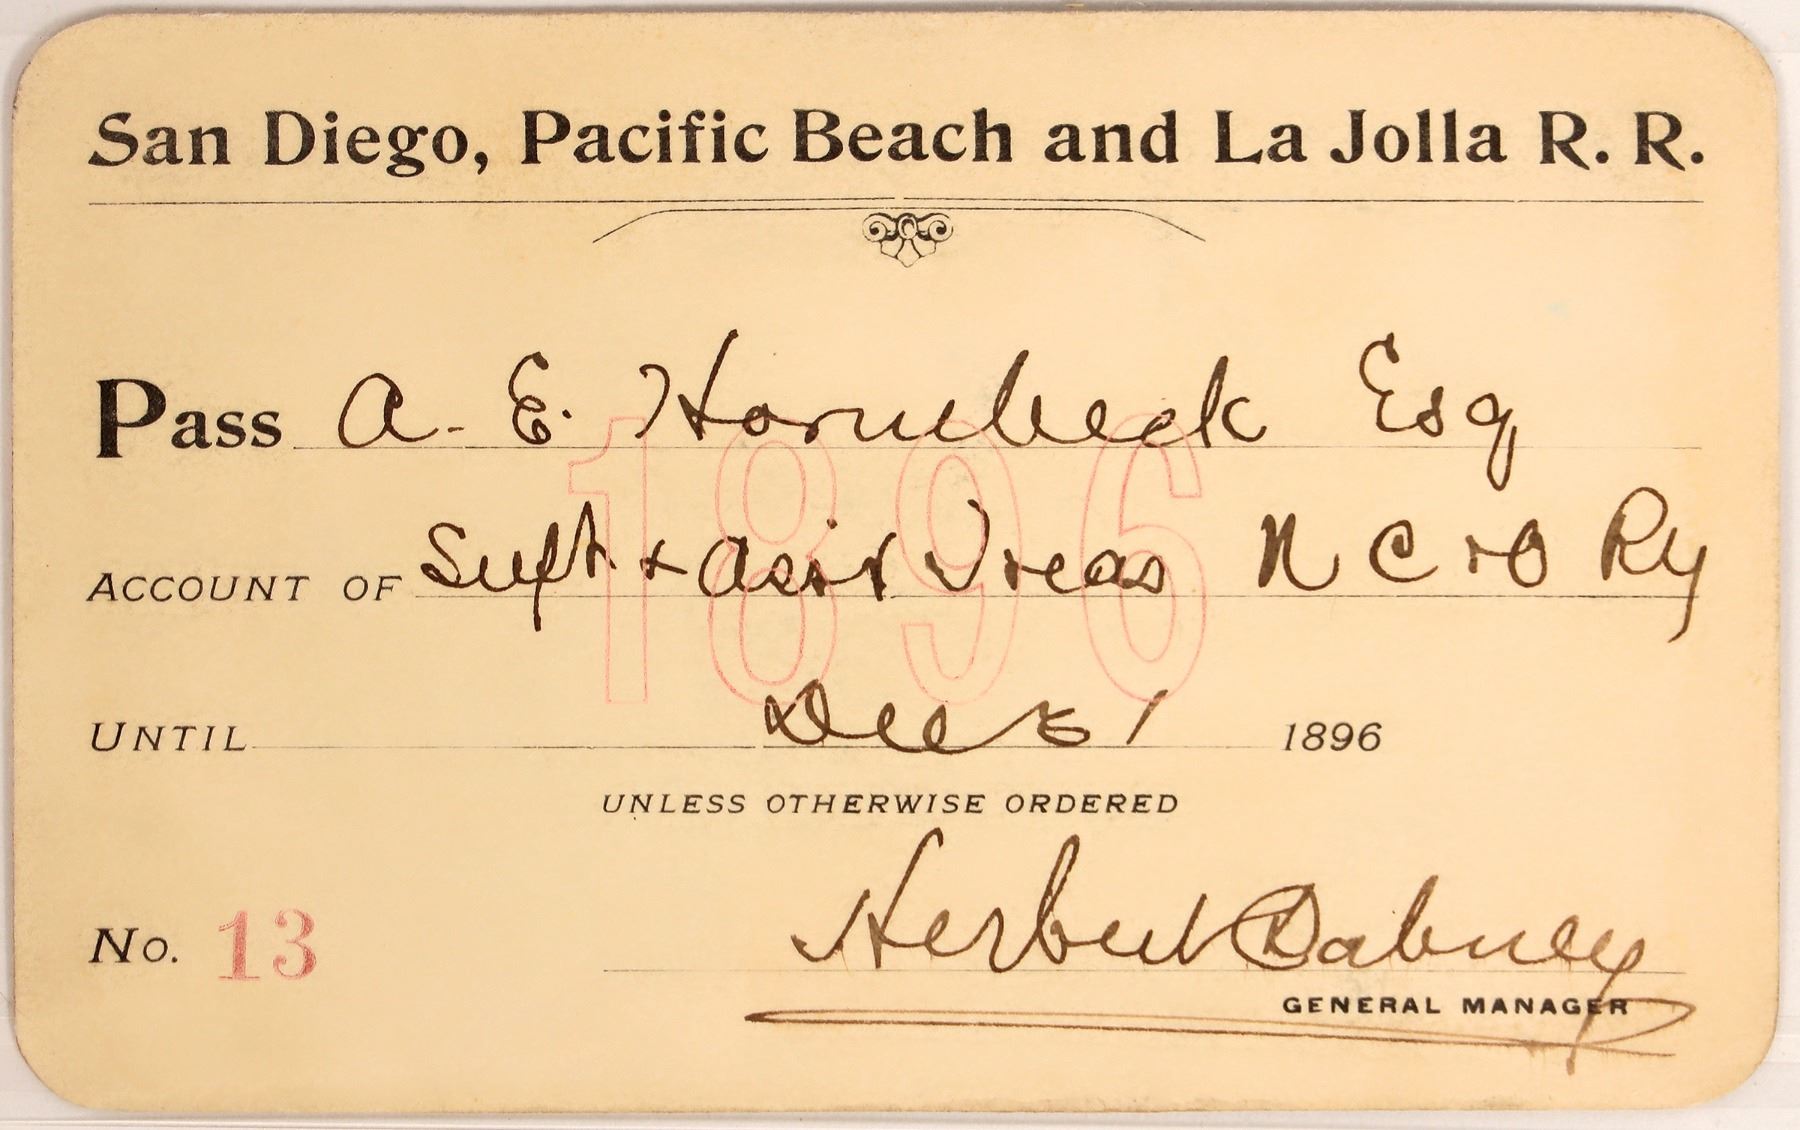 San Diego, Pacific Beach and La Jolla R. R.
Pass A. E. Hornbeck Esq
1896
ACCOUNT OF Supt + Asst Treas N C + O Ry
UNTIL Dec 31 1896
UNLESS OTHERWISE ORDERED
No. 13 Herbert Dabney
GENERAL MANAGER